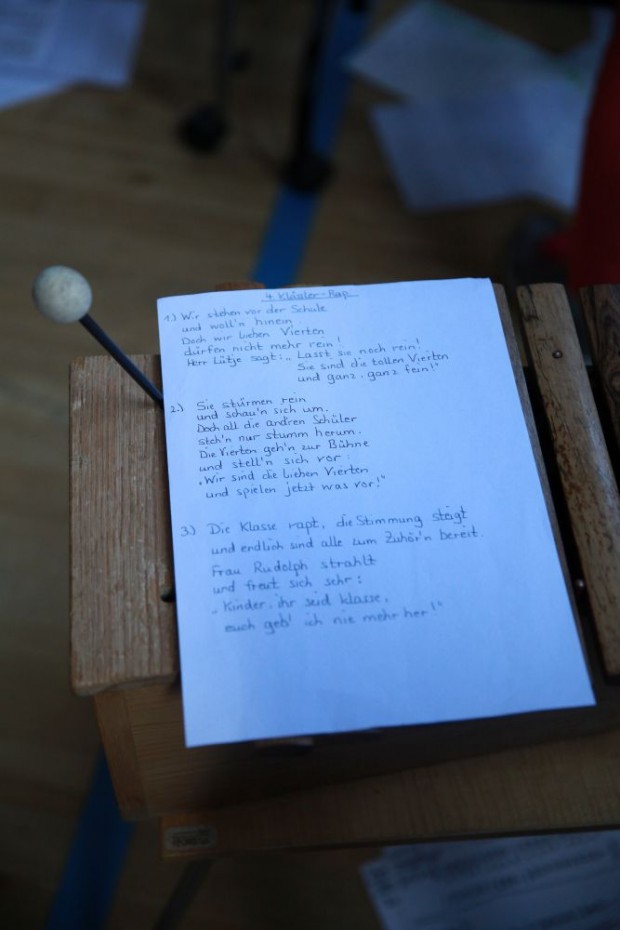 4. Klässler-Rap
1.) Wir stehen vor der Schule
und woll'n hinein.
Doch wir lieben Vierten
dürfen nicht mehr rein!
Herr Lütje sagt: „Lasst sie noch rein!
Sie sind die tollen Vierten
und ganz, ganz fein!"
2.) Sie stürmen rein
und schau'n sich um.
Doch all die andren Schüler
steh'n nur stumm herum.
Die Vierten geh'n zur Bühne
und stell'n sich vor:
„Wir sind die lieben Vierten
und spielen jetzt was vor!"
3.) Die Klasse rapt, die Stimmung steigt
und endlich sind alle zum Zuhör'n bereit.
Frau Rudolph strahlt
und freut sich sehr:
„Kinder, ihr seid klasse,
euch geb' ich nie mehr her!"